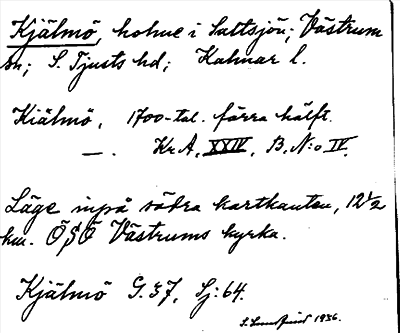 Kjälmö, holme i Saltsjön; Västrum
sn; S. Tjusts hd; Kalmar l.
Kiälmö, 1700-tal. förra hälft.
— . Kr.A. XXIV. B. N:o IV.
Läge inpå södra kartkanten, 12 1/2
km. ÖSÖ Västrums kyrka.
Kjälmö G. 37, Sj: 64.
1936.